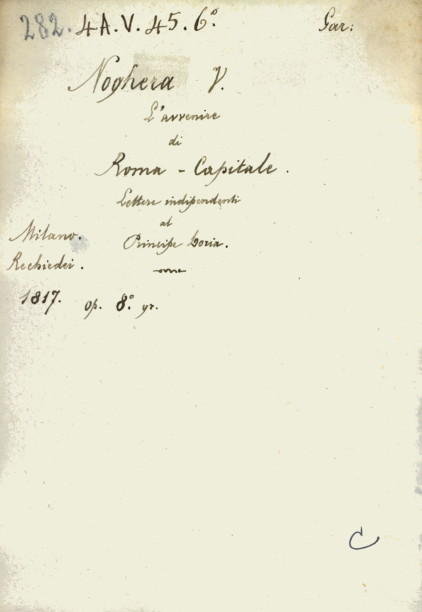 282. 4 A. V. 45. 6°.
Gar:
Noghera V.
L'avvenire
di
Roma - Capitale.
Lettere indipendenti
al
Principe Doria.
Milano.
Rechiedei.
1817.
op. 8° gr.
C